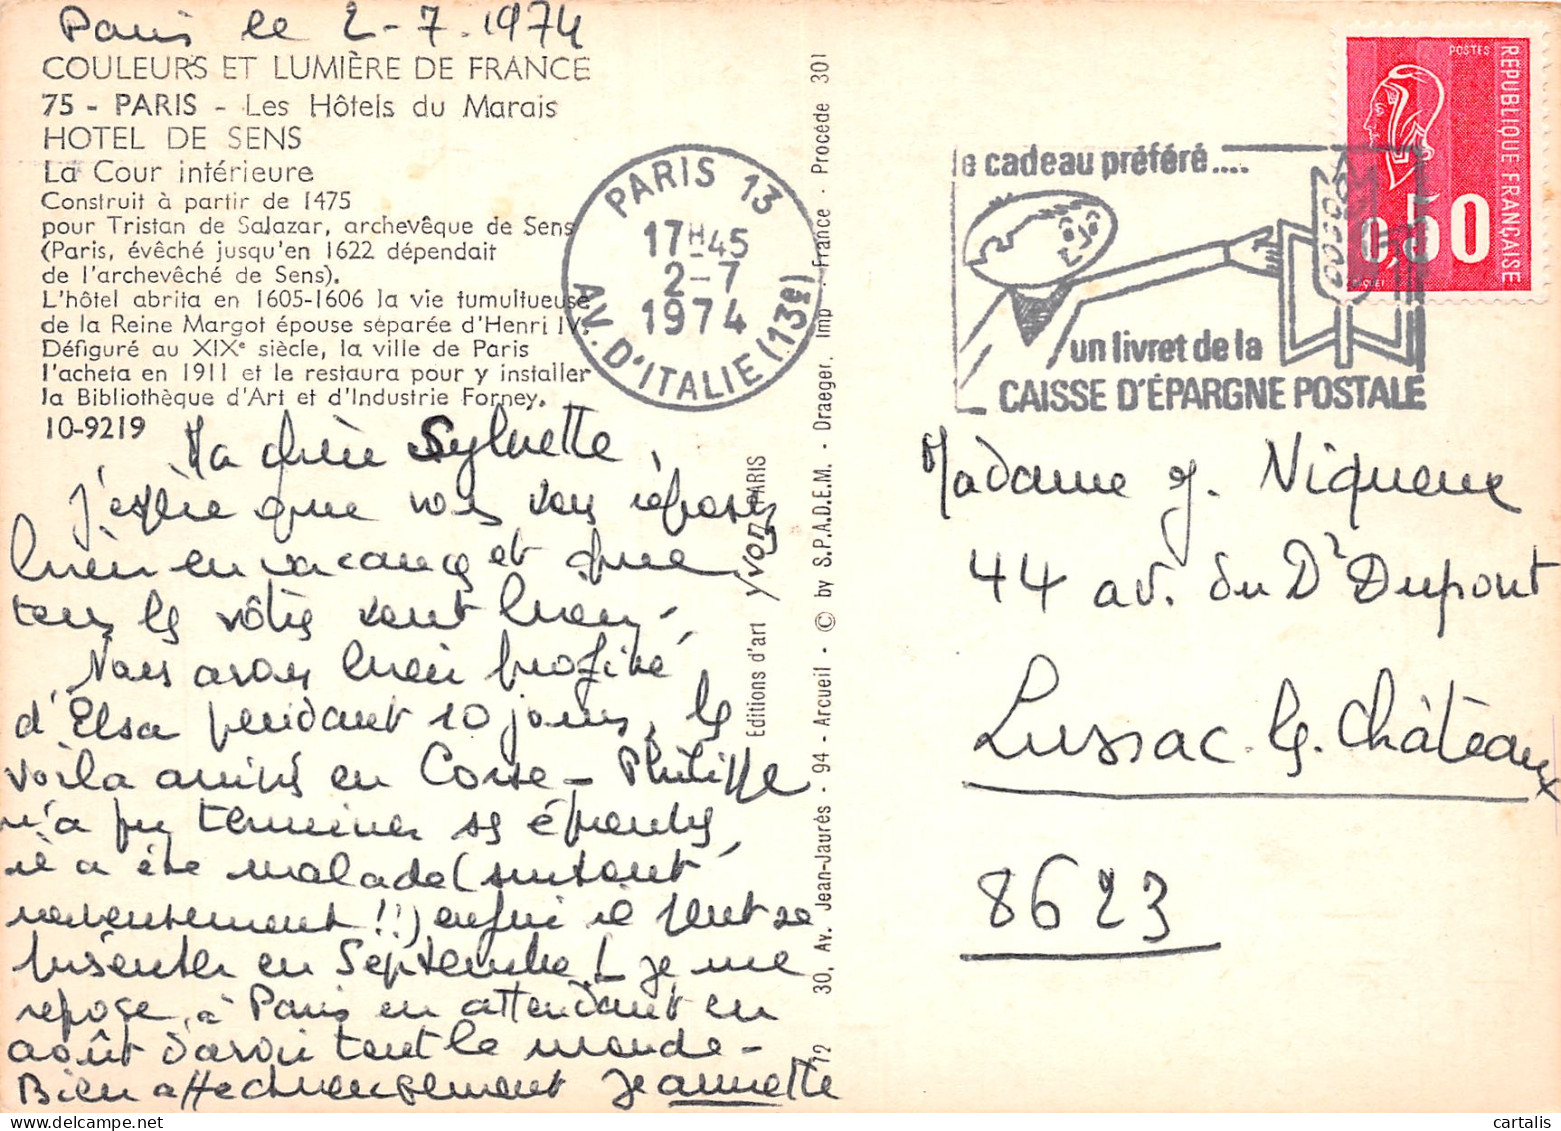 Paris le 2-7.1974
COULEURS ET LUMIÈRE DE FRANCE
75 - PARIS - Les Hôtels du Marais
HOTEL DE SENS
La Cour intérieure
Construit à partir de 1475
pour Tristan de Salazar, archevêque de Sens
(Paris, évêché jusqu'en 1622 dépendait
de l'archevêché de Sens).
L'hôtel abrita en 1605-1606 la vie tumultueuse
de la Reine Margot épouse séparée d'Henri IV.
Défiguré au XIXe siècle, la ville de Paris
l'acheta en 1911 et le restaura pour y installer
la Bibliothèque d'Art et d'Industrie Forney.
10-9219
Ma chère Sylvette,
J'espère que vous vous reposez
bien en vacances et que
tous les vôtres vont bien -
Nous avons bien profité
d'Elsa pendant 10 jours, les
voilà arrivés en Corse - Philippe
n'a pu terminer ses épreuves,
il a été malade (surtout
nerveusement !!) enfin il peut se
présenter en Septembre ! je me
repose à Paris en attendant en
août d'avoir tout le monde -
Bien affectueusement Jeannette
Editions d'art Yvon PARIS
30, Av. Jean-Jaurès - 94 - Arcueil - © by S.P.A.D.E.M. - Draeger, Imp. France - Procédé 301
72
PARIS 13
17H45
2-7
1974
AV. D'ITALIE (13e)
le cadeau préféré....
un livret de la
CAISSE D'ÉPARGNE POSTALE
POSTES
REPUBLIQUE FRANÇAISE
0,50
Madame J. Niqueux
44 av. du Dr Dupont
Lussac-les-Châteaux
8623
cartalis